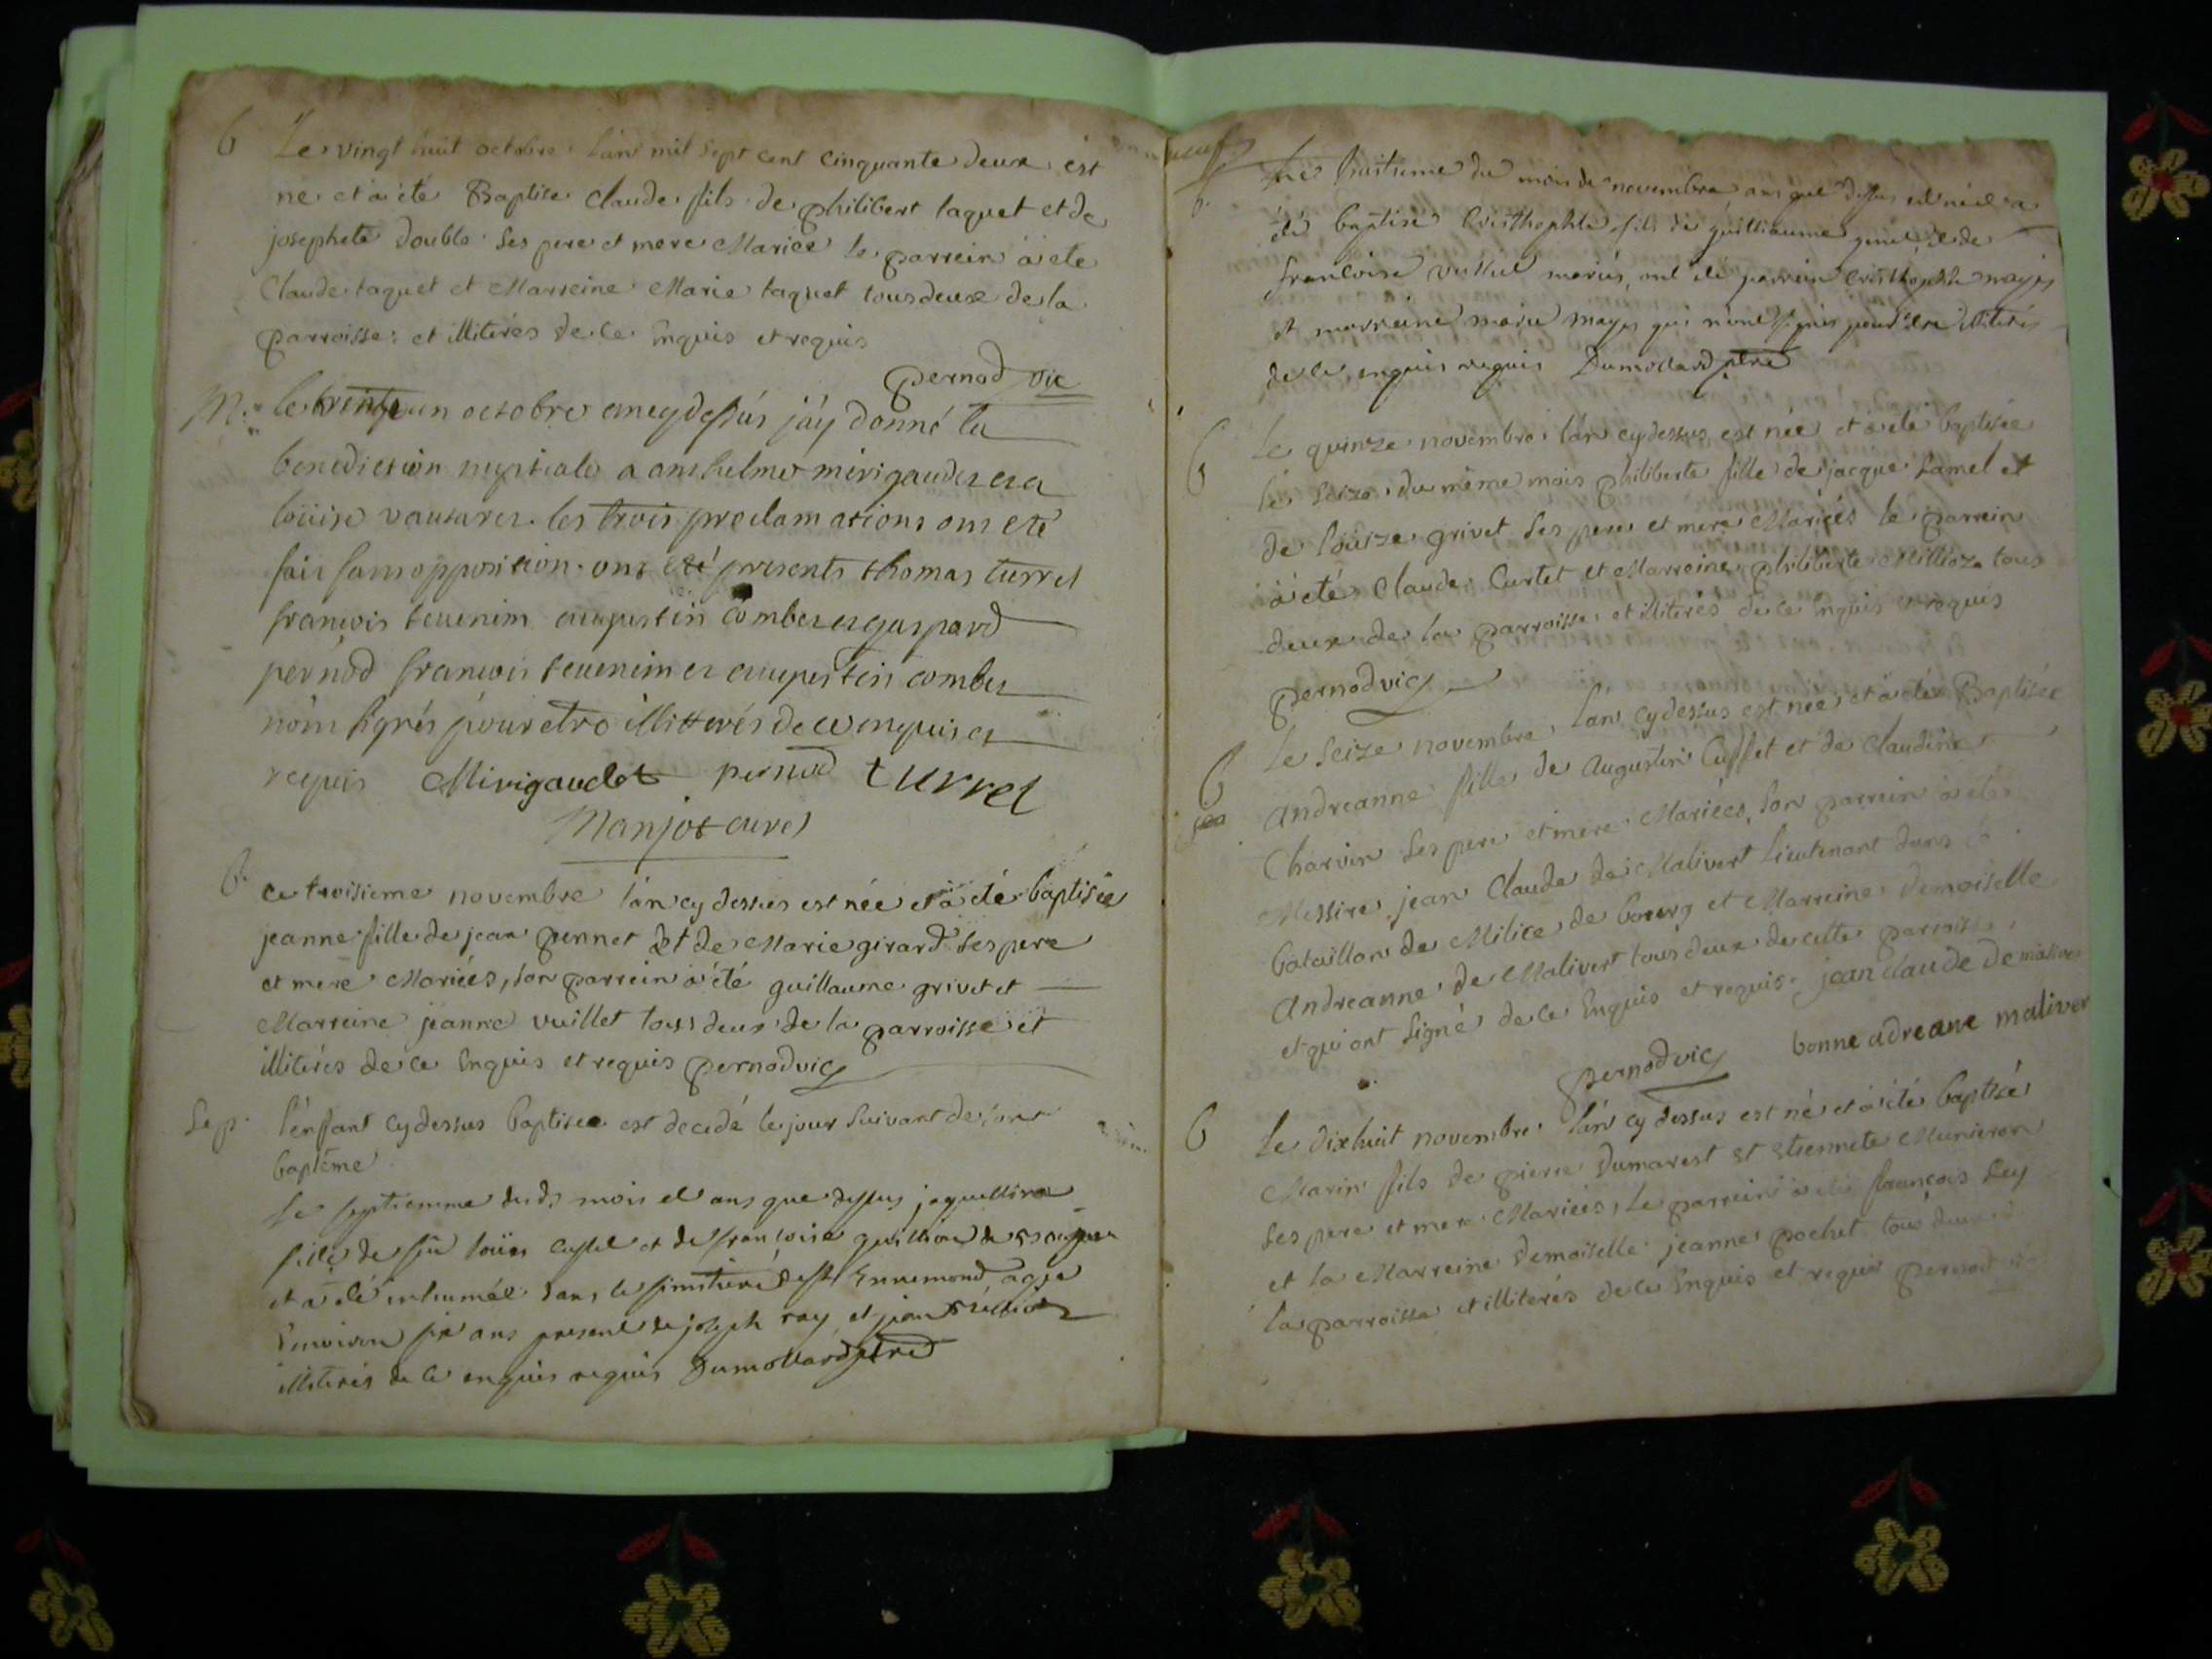 B Le vingt huit octobre l'an mil sept cent cinquante deux est
né et a été Baptise Claude fils de philibert taquet et de
josephete double ses pere et mere Marice le parrein a ete
Claude taquet et Marreine Marie taquet tous deux de la
parroisse et illiteres de ce Enquis et requis
pernod vic
M. le trente un octobre aneydessus j'ay donné la
benediction nuptiale a anthelme mirigaudet et a
loüise vautaret. les trois proclamations ont eté
fait sans opposition. ont eté presents thomas turrel
francois teuenin augustin combet et gaspard
pernod francois teuenin et augustin combet
nom signés pour etre illitterés de ce enquis et
requis Mirigaudet pernod turrel
Manjot curé
B. ce troisieme novembre l'an cy dessus est née et a eté baptisée
jeanne fille de jean pennet et de Marie girard ses pere
et mere Mariées, son parrein a été guillaume grivet et
Marreine jeanne vuillet tous deux de la parroisse et
illiterés de ce Enquis et requis pernod vic
Sep. l'enfant cy dessus baptisee est decedé le jour suivant de sont
baptême
Le septiemme duds mois et ans que dessus jaquelline
fille de fu loüis et de francoise
et a eté inhumée dans le simitiere de st Ennemond agée
d'environ six ans present de joseph ray et jean
illiterés de ce enquis requis Dumollard ptre
B. Le huitieme du mois de novembre ans que dessus est né et a
été baptisé Cristhophle fils de guilliaume et de
francoise vuillet mariés, ont été parrein Cristhophle mayet
et marreine marie mayet qui n'ont signés pour etre illiterés
de ce enquis requis Dumollard ptre
B Le quinze novembre l'an cy dessus est née et a eté baptisée
le seize du même mois philiberte fille de jacque Lamel et
de louize grivet ses pere et mere Mariées le parrein
a eté Claude Curtet et Marreine philiberte Millioz tous
deux de la parroisse et illiterés de ce Enquis et requis
pernod vic
B Le seize novembre l'an cy dessus est née et a eté Baptisée
andreanne fille de augustin Cusset et de Claudine
Charvin ses pere et mere Mariées, son parrein a eté
Messire jean Claude de Malivert lieutenant dans le
bataillon de Milice de bourg et Marreine demoiselle
andreanne de Malivert tous deux de cette parroisse,
et qui ont signé de ce Enquis et requis. jean claude de malivert
pernod vic bonne adreane maliver
B Le dixhuit novembre l'an cy dessus est né et a eté baptisé
Marin fils de pierre Dumarest et Etiennete Munieron
ses pere et mere Mariées, le parrein a eté françois Ley
et la Marreine demoiselle jeanne pochet tous deux d
la parroisse et illiterés de ce Enquis et requis pernod vic